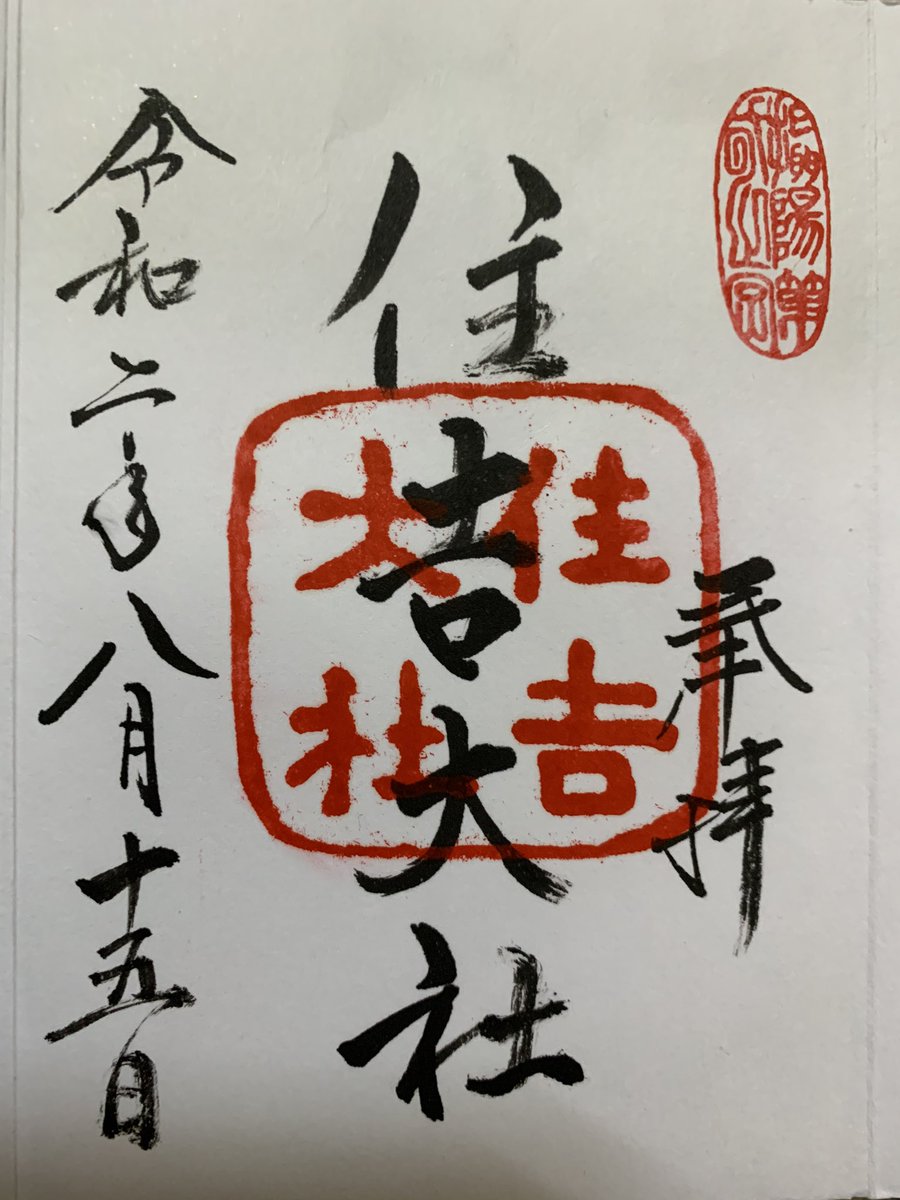 摂陽第
奉拝
住吉大社
住吉
大社
令和二年八月十五日